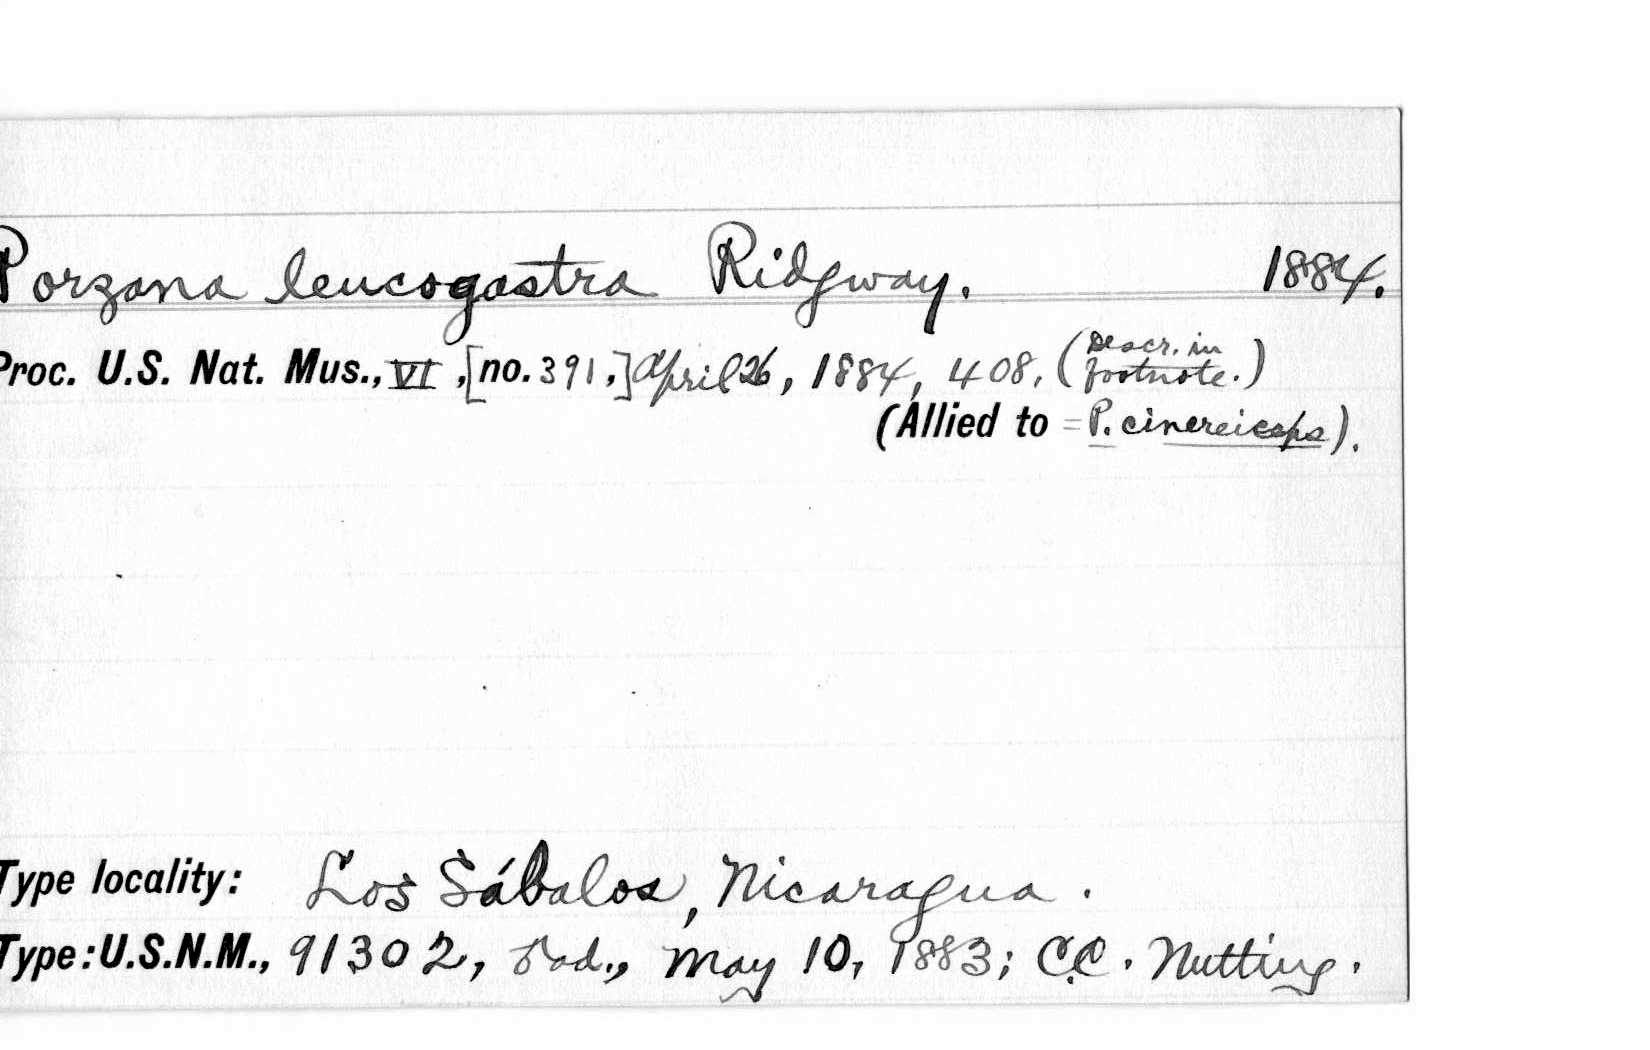 Porzana leucogastra Ridgway. 1884.
Proc. U.S. Nat. Mus., VI, [no. 391,] April 26, 1884, 408. (Descr. in footnote.)
(Allied to = P. cinereiceps).
Type locality: Los Sábalos, Nicaragua.
Type: U.S.N.M., 91302, ad., May 10, 1883; C.C. Nutting.